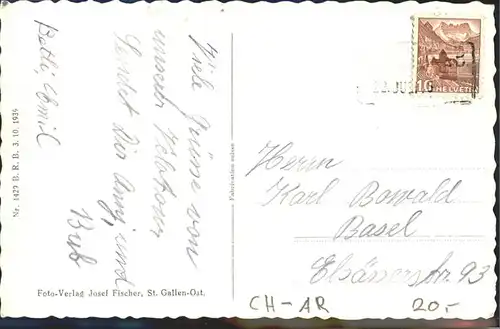 Viele Grüsse von
unserer Velotour
Sendet Dir Anny, und
Bub
Betli, Emil
Nr. 1429 B. R. B. 3. 10. 1939
Foto-Verlag Josef Fischer, St. Gallen-Ost.
Fabrication suisse
10 HELVETIA
Herrn
Karl Bowald
Basel
Elsässerstr. 93
CH-AR 20.-